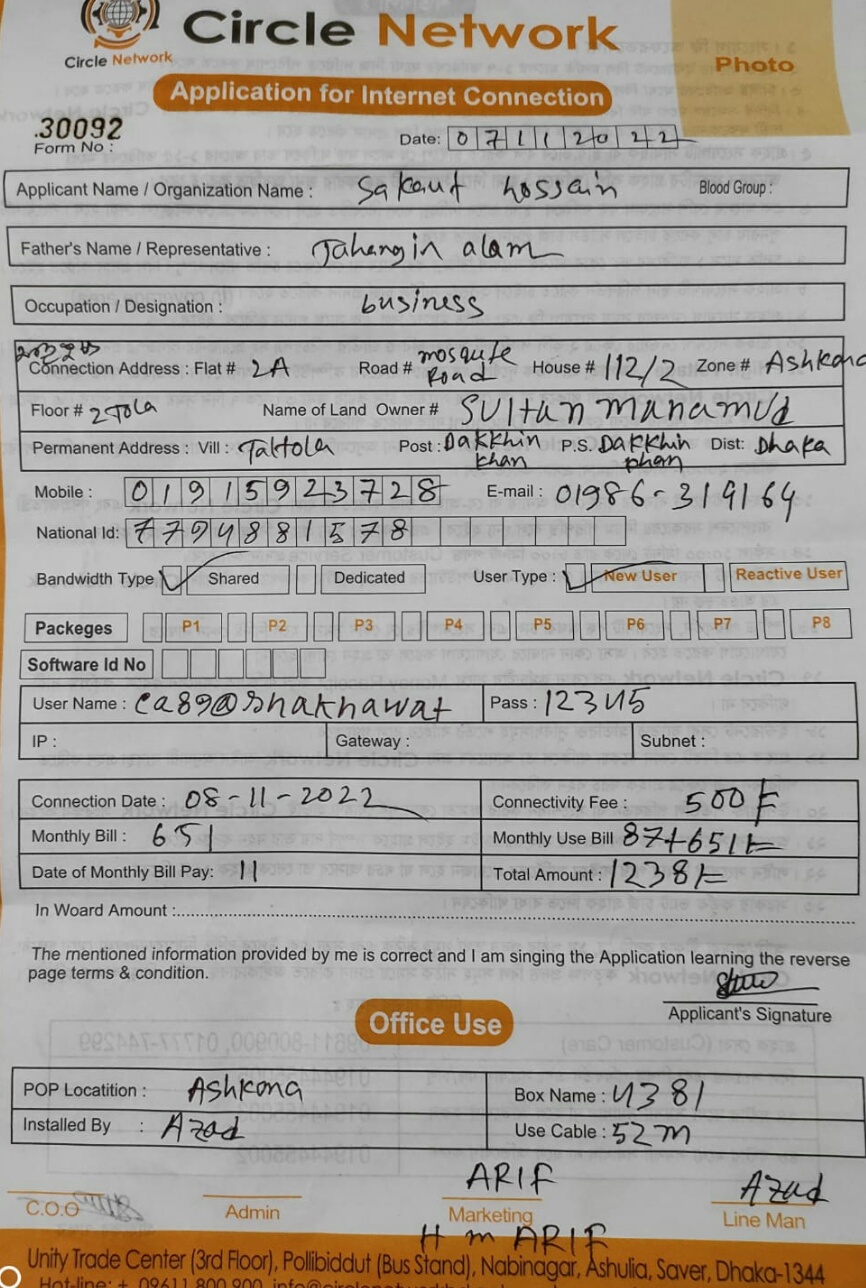 Circle Network
Circle Network
Photo
Application for Internet Connection
.30092
Form No :
Date: 07112022
Applicant Name / Organization Name : Sakaut hossain Blood Group :
Father's Name / Representative : Jahangin alam
Occupation / Designation : business
Connection Address : Flat # 2A Road # mosque Road House # 112/2 Zone # Ashkona
Floor # 2 Tola Name of Land Owner # Sultan Mahamud
Permanent Address : Vill : Taltola Post : Dakkhin khan P.S. Dakkhin Dist: Dhaka
Mobile : 01915923728 E-mail : 01986-319164
National Id: 7794881578
Bandwidth Type Shared Dedicated User Type : New User Reactive User
Packeges P1 P2 P3 P4 P5 P6 P7 P8
Software Id No
User Name : Ca89@Shakhawat Pass : 12345
IP : Gateway : Subnet :
Connection Date : 08-11-2022 Connectivity Fee : 500/=
Monthly Bill : 651 Monthly Use Bill 87+651/=
Date of Monthly Bill Pay: 11 Total Amount : 1238/=
In Woard Amount :
The mentioned information provided by me is correct and I am singing the Application learning the reverse
page terms & condition.
Applicant's Signature
Office Use
POP Locatition : Ashkona Box Name : U381
Installed By : Azad Use Cable : 52m
ARIF Azad
C.O.O Admin Marketing Line Man
H m ARIF
Unity Trade Center (3rd Floor), Pollibiddut (Bus Stand), Nabinagar, Ashulia, Saver, Dhaka-1344